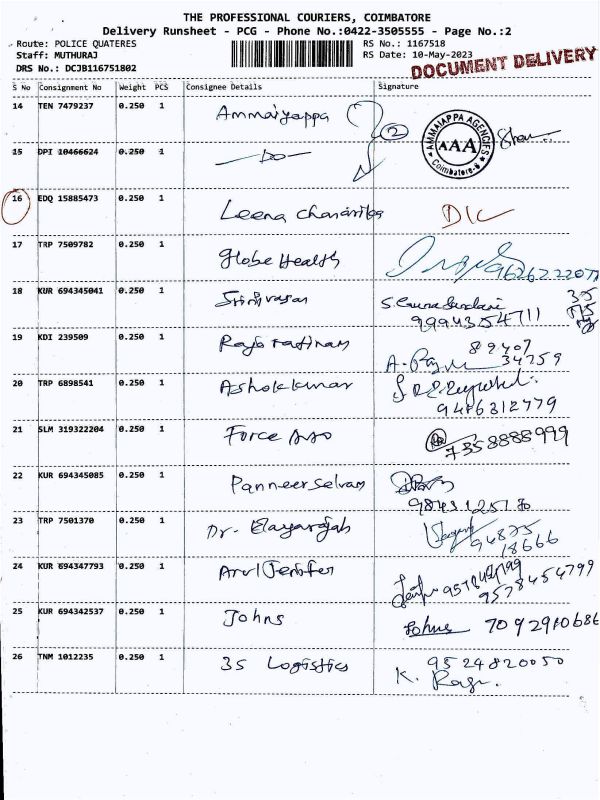 THE PROFESSIONAL COURIERS, COIMBATORE
Delivery Runsheet - PCG - Phone No.:0422-3505555 - Page No.:2
Route: POLICE QUATERES RS No.: 1167518
Staff: MUTHURAJ RS Date: 10-May-2023
DRS No.: DCJB116751802 DOCUMENT DELIVERY
S No Consignment No Weight PCS Consignee Details Signature
14 TEN 7479237 0.250 1 Ammaiyappa 2
AMMAIAPPA AGENCIES AAA Coimbatore-6
15 DPI 10466624 0.250 1 -Do-
16 EDQ 15885473 0.250 1 Leena D/C
17 TRP 7509782 0.250 1 Globe Health
18 KUR 694345041 0.250 1 Srinivasan
9994354711
19 KDI 239509 0.250 1 89407
34759
20 TRP 6898541 0.250 1 Ashokkumar
9486312779
21 SLM 319322204 0.250 1 Force
7358888999
22 KUR 694345085 0.250 1 Panneerselvam
23 TRP 7501370 0.250 1 Dr. Elayarajah
94875
18666
24 KUR 694347793 0.250 1 Arul Jenifer
9578454799
25 KUR 694342537 0.250 1 Johns Johns 7092910686
26 TNM 1012235 0.250 1 3S Logistics 9524820050
K.